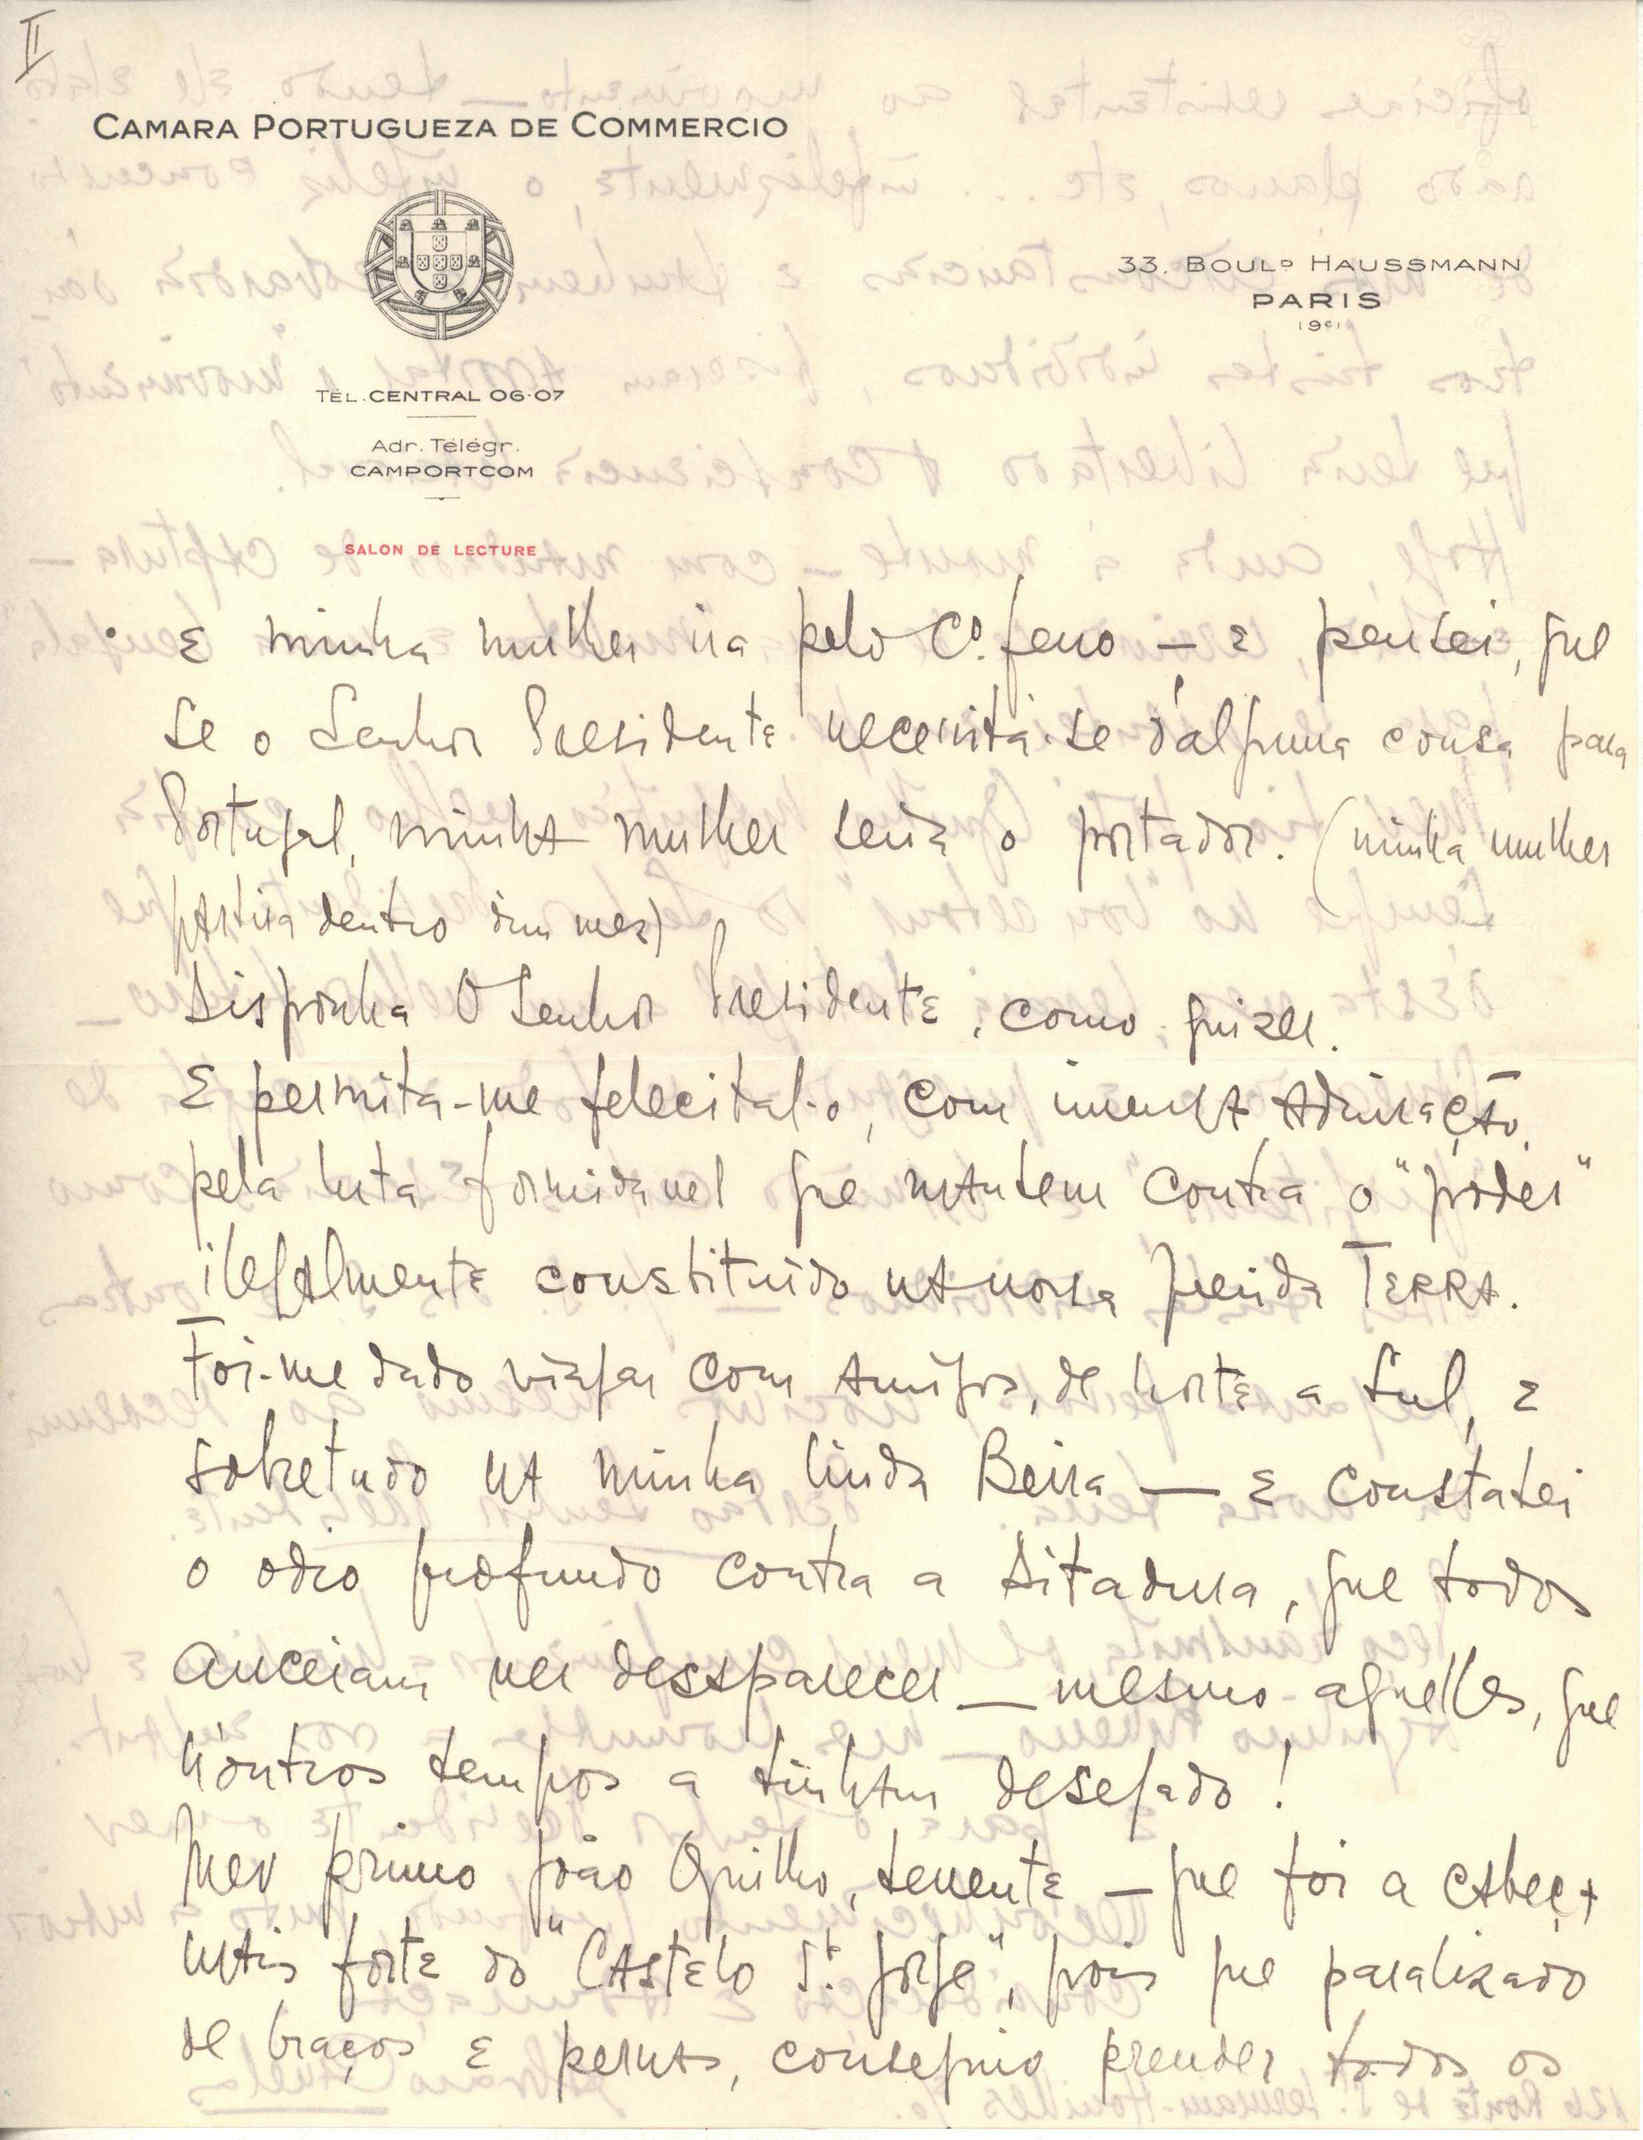 II
CAMARA PORTUGUEZA DE COMMERCIO
33. BOULD HAUSSMANN
PARIS
(9e)
TÉL. CENTRAL 06-07
Adr. Télégr.
CAMPORTCOM
SALON DE LECTURE
E minha mulher iria pelo Cº. ferro — e pensei, que
se o Senhor Presidente necessitá-se d'alguma cousa para
Portugal, minha mulher seria o portador. (minha mulher
partirá dentro dum mez)
Disponha O Senhor Presidente, como, quizer.
E permita-me felecital-o, com imensa Admiração,
pela luta formidavel que mantem contra o "poder"
ilegalmente constituido na nossa querida TERRA.
Foi-me dado viajar com Amigos, de norte a Sul, e
sobretudo na minha linda Beira — e constatei
o odio profundo contra a Ditadura, que todos
anceiam ver desaparecer — mesmo aquelles, que
n'outros tempos a tinham desejado!
Meu primo João Quilho, tenente — que foi a cabeça
mais forte do "Castelo St. Jorge", pois que paralizado
de braços e pernas, conseguio prender todos os